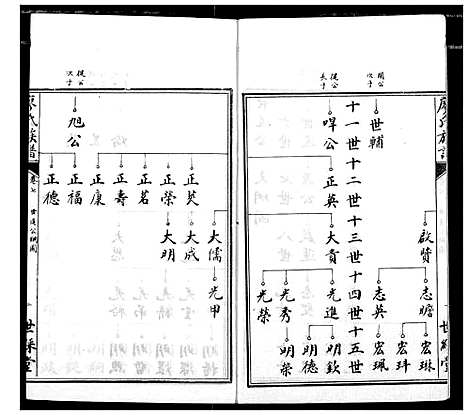 廖氏族譜
世綵堂
閏公
次子
世輔
啟贊
志瞻
志英
宏琳
宏玤
宏珮
十一世十二世十三世十四世十五世
提公
長子
㫕公
正英
大貴
光進
光秀
光榮
明欽
明德
明榮
大儒
光甲
正英
大成
正榮
大明
正茗
正壽
正康
正福
正德
提公
次子
旭公
廖氏族譜
卷七
世綵堂